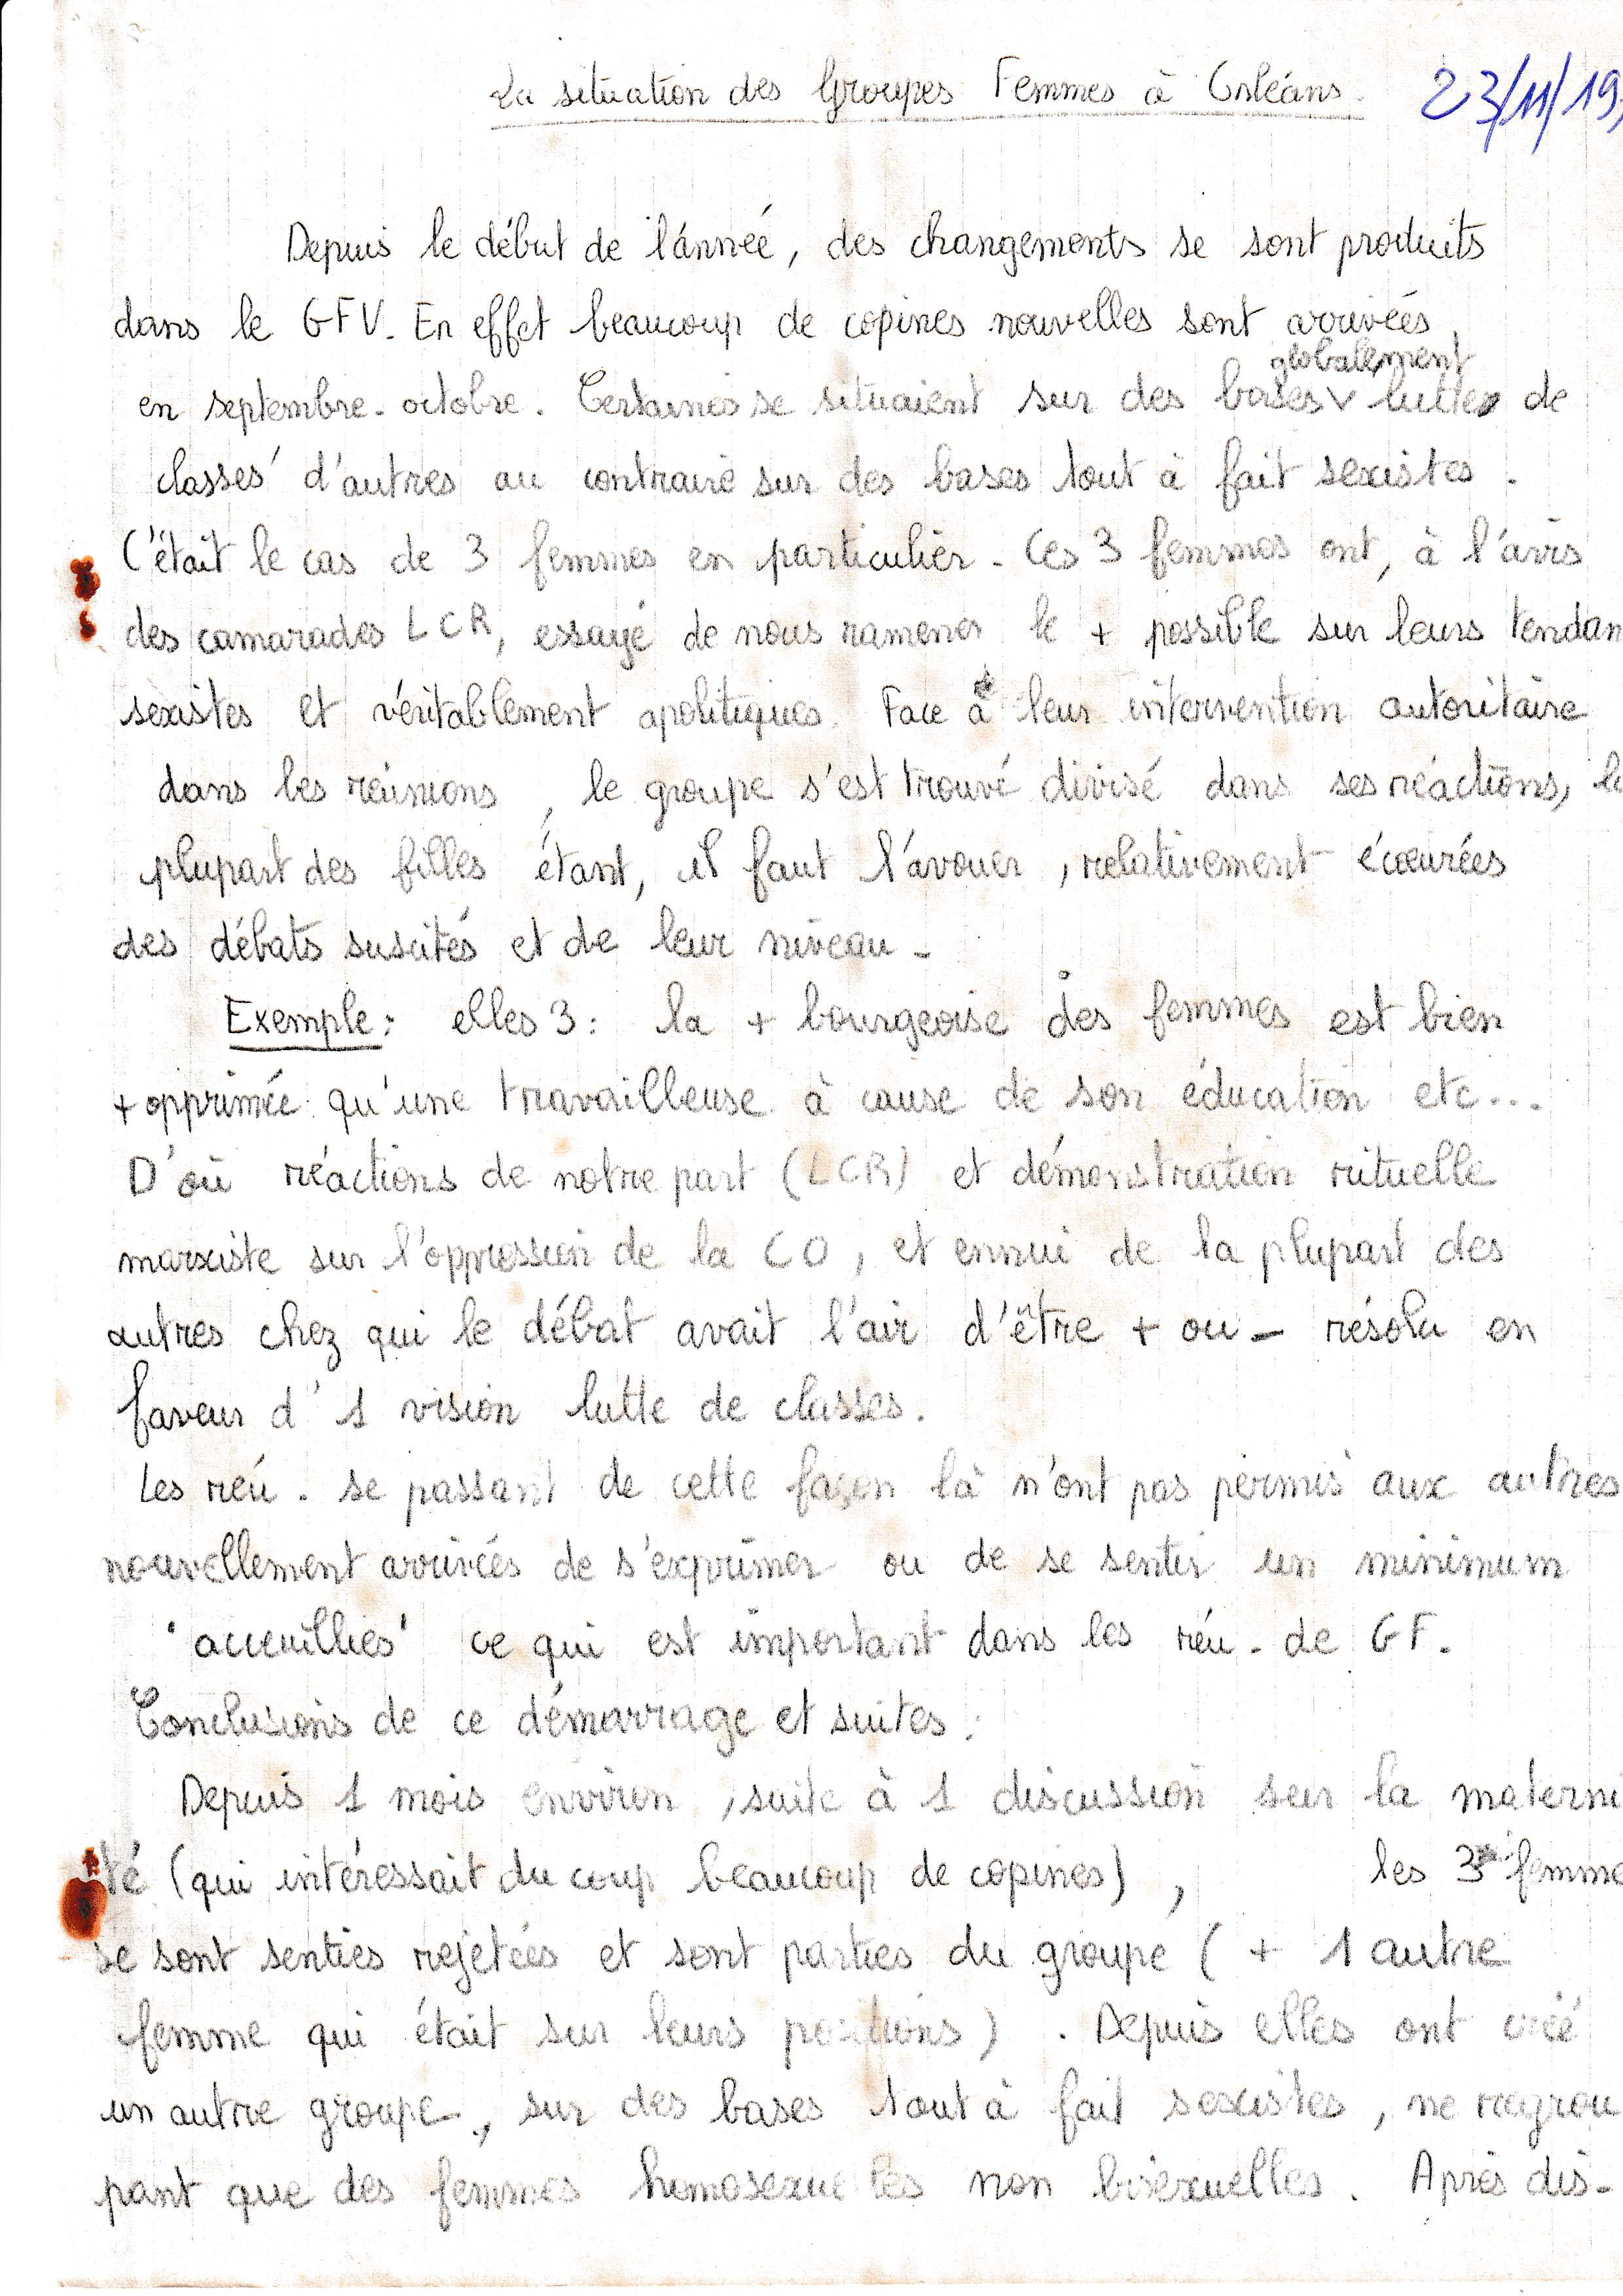 La situation des Groupes Femmes à Orléans.
23/11/19
Depuis le début de l'année, des changements se sont produits
dans le GFV. En effet beaucoup de copines nouvelles sont arrivées
globalement
en septembre-octobre. Certaines se situaient sur des bases lutte de
classes d'autres au contraire sur des bases tout à fait sexistes.
C'était le cas de 3 femmes en particulier. Ces 3 femmes ont, à l'avis
des camarades LCR, essayé de nous ramener le + possible sur leurs tendan
sexistes et véritablement apolitiques. Face à leur intervention autoritaire
dans les réunions, le groupe s'est trouvé divisé dans ses réactions, la
plupart des filles étant, il faut l'avouer, relativement écoeurées
des débats suscités et de leur niveau.
Exemple: elles 3: la + bourgeoise des femmes est bien
+ opprimée qu'une travailleuse à cause de son éducation etc...
D'où réactions de notre part (LCR) et démonstration rituelle
marxiste sur l'oppression de la CO, et ennui de la plupart des
autres chez qui le débat avait l'air d'être + ou - résolu en
faveur d'1 vision lutte de classes.
Les réu. se passant de cette façon là n'ont pas permis aux autres
nouvellement arrivées de s'exprimer ou de se sentir un minimum
'accueillies' ce qui est important dans les réu. de GF.
Conclusions de ce démarrage et suites:
Depuis 1 mois environ, suite à 1 discussion sur la materni
té (qui intéressait du coup beaucoup de copines), les 3 femme
se sont senties rejetées et sont parties du groupe (+ 1 autre
femme qui était sur leurs positions). Depuis elles ont créé
un autre groupe, sur des bases tout à fait sexistes, ne regrou
pant que des femmes homosexuelles non bisexuelles. Après dis-